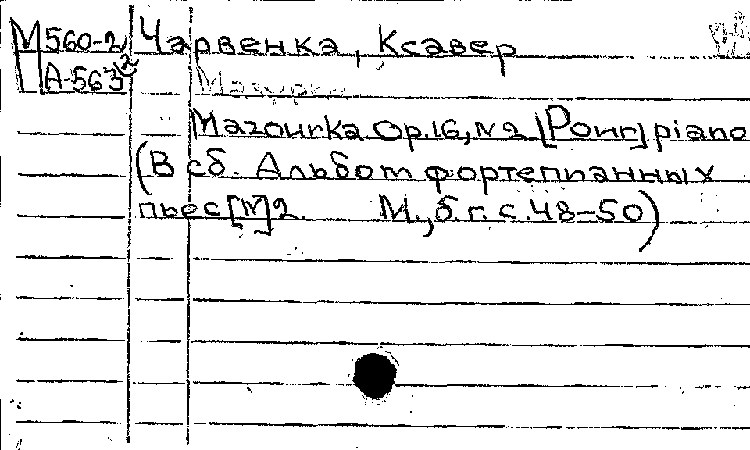 М560-2 Чарвенка, Ксавер
А-563
Мазурка
Mazourka Op.16, N2 [Pour] piano
(В сб. Альбом фортепианных
пьес [N] 2. М., б.г. с.48-50)